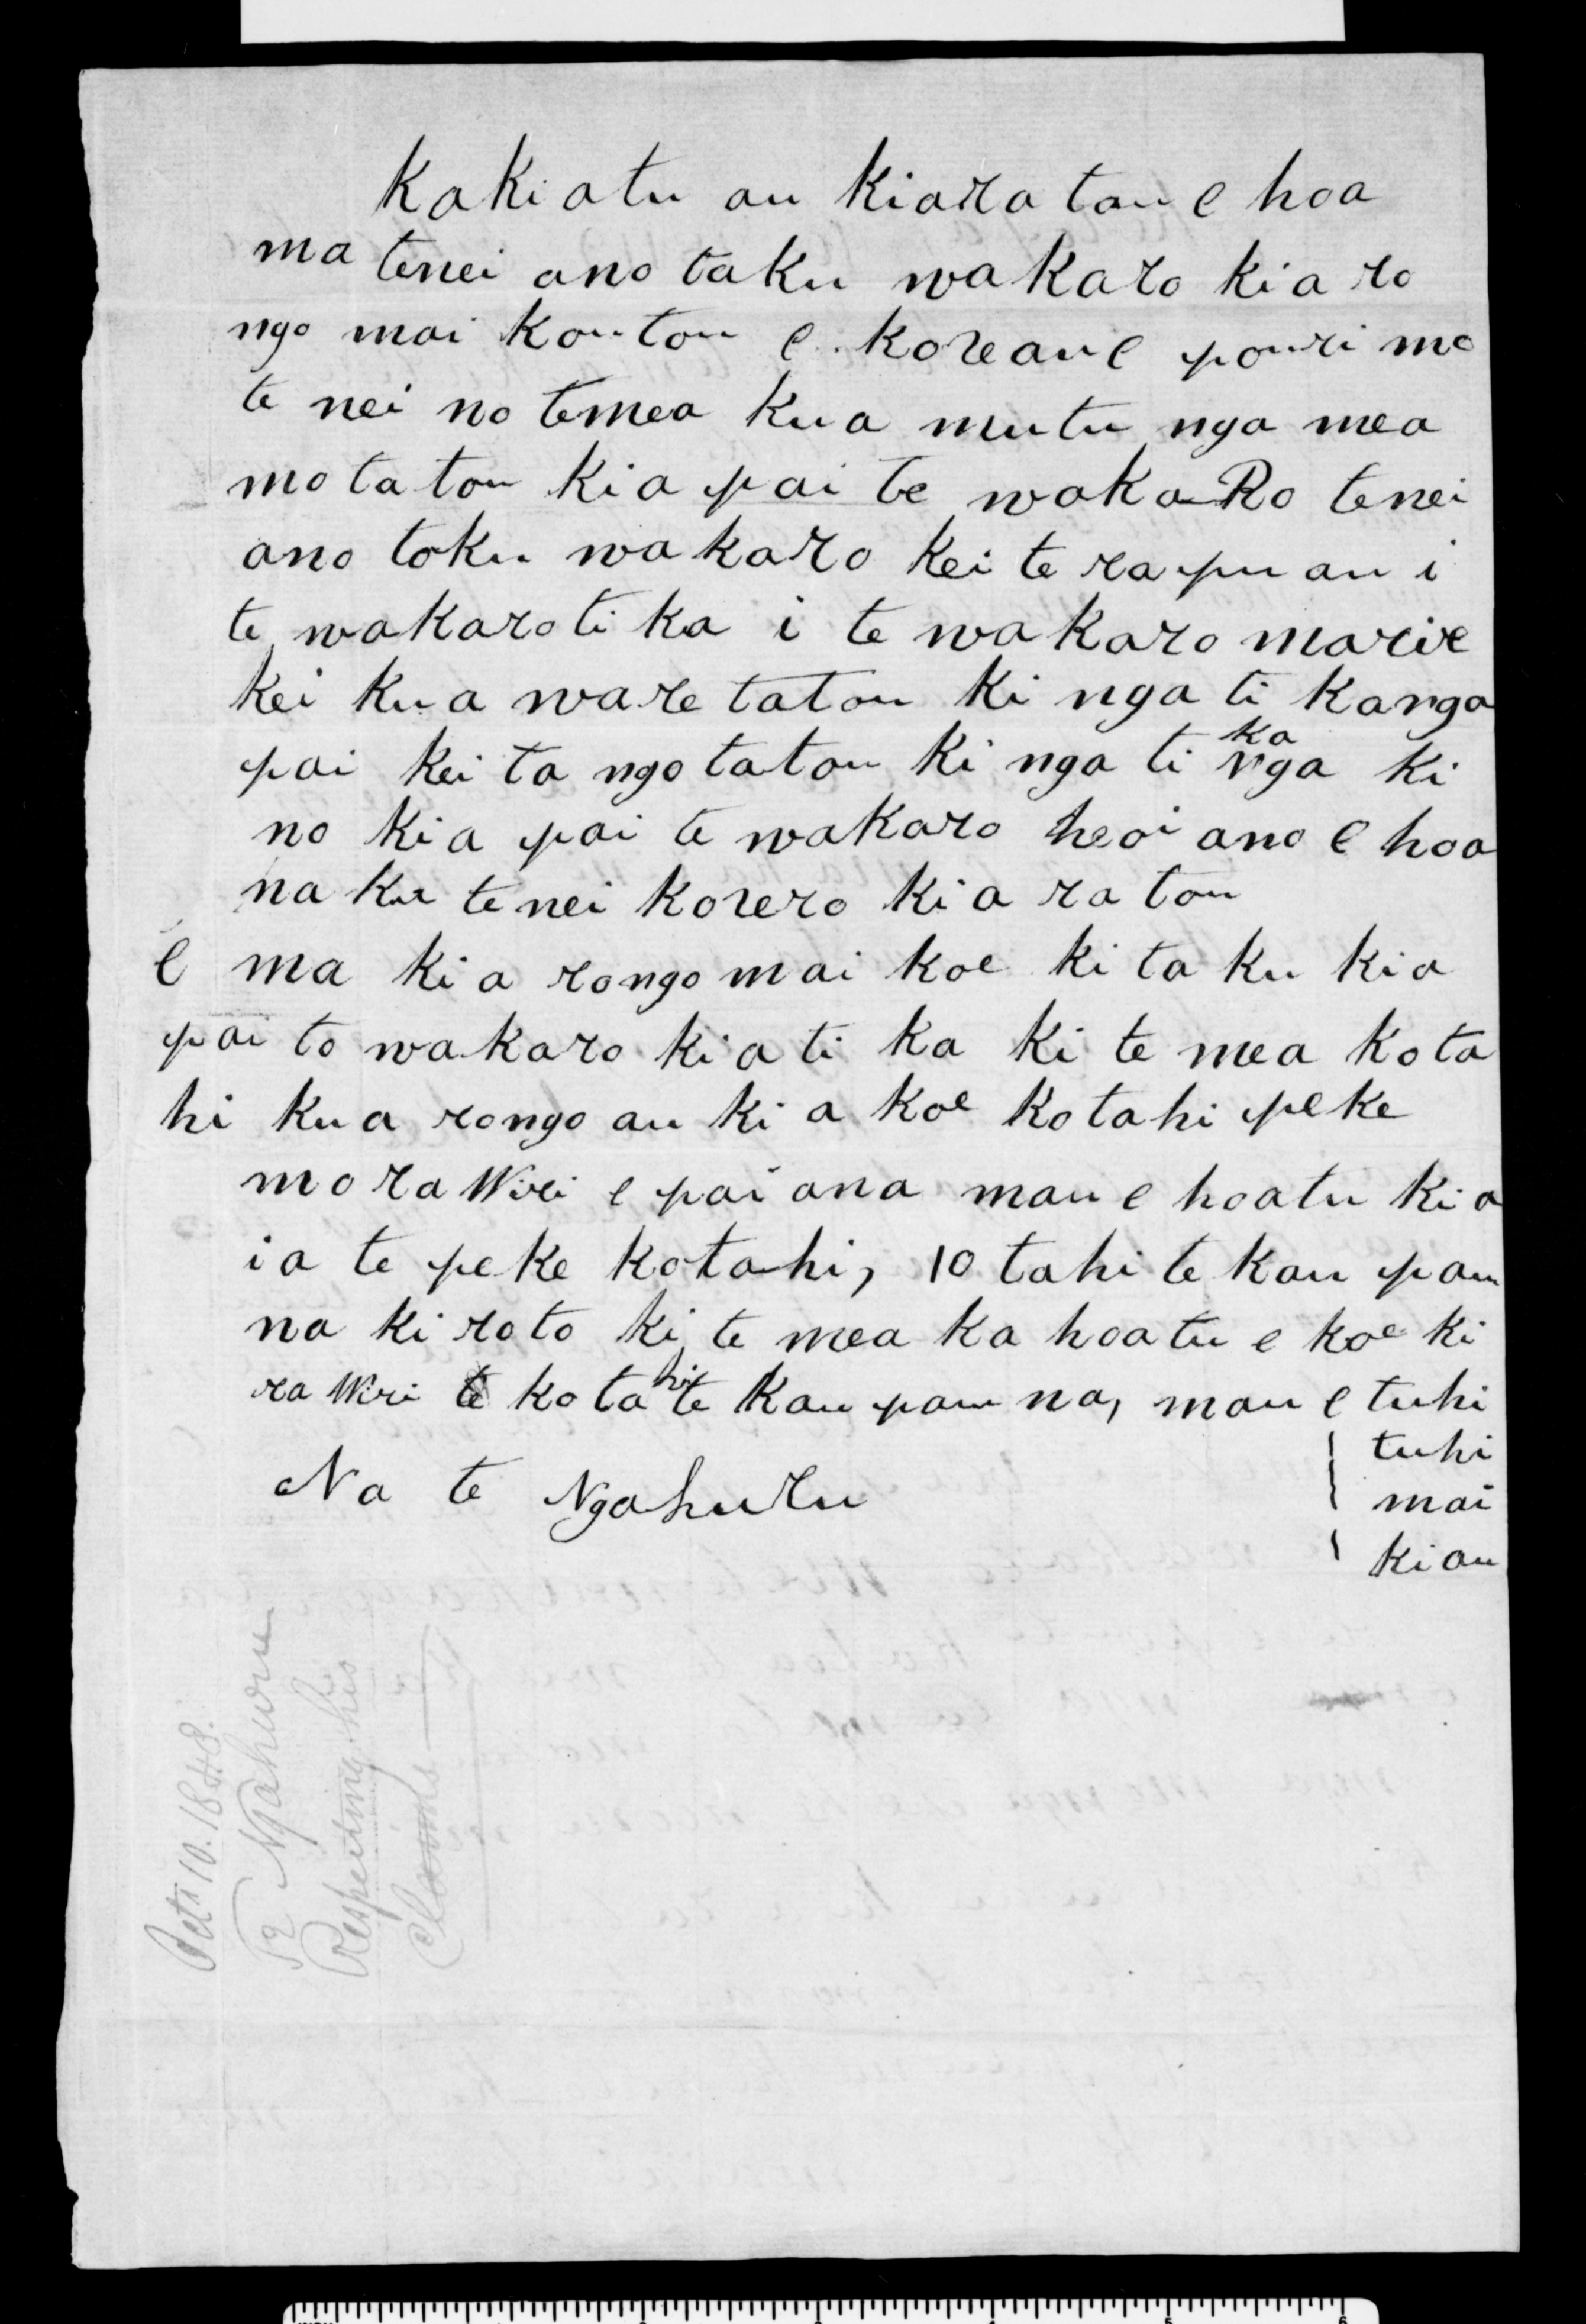 Kaki atu au kiara tou e hoa
ma tenei ano taku wakaro kia ro
ngo mai koutou e koreau e pouri mo
te nei no temea kua mutu nga mea
mo ta tou kia pai te wakaRo tenei
ano toku wakaro kei te rapu au i
te wakaro ti ka i te wakaro marire
kei kua ware tatou ki nga ti kanga
pai kei ta ngo tatou ki nga ti ka nga ki
no kia pai te wakaro heoi ano e hoa
na ku te nei korero ki a ra tou
E ma ki a rongo mai koe ki ta ku kia
pai to wakaro ki a ti ka ki te mea kota
hi kua rongo au ki a koe kotahi peke
mo ra Wiri e pai ana mau e hoatu ki a
i a te peke kotahi, 10 tahi te kau pau
na ki roto ki te mea ka hoatu e koe ki
ra Wiri te ko ta hi te kau pau na, mau e tuhi
tuhi
mai
ki au
Na te Ngahuru
Octr 10. 1848.
Te Ngahuru
Respecting his
Claims